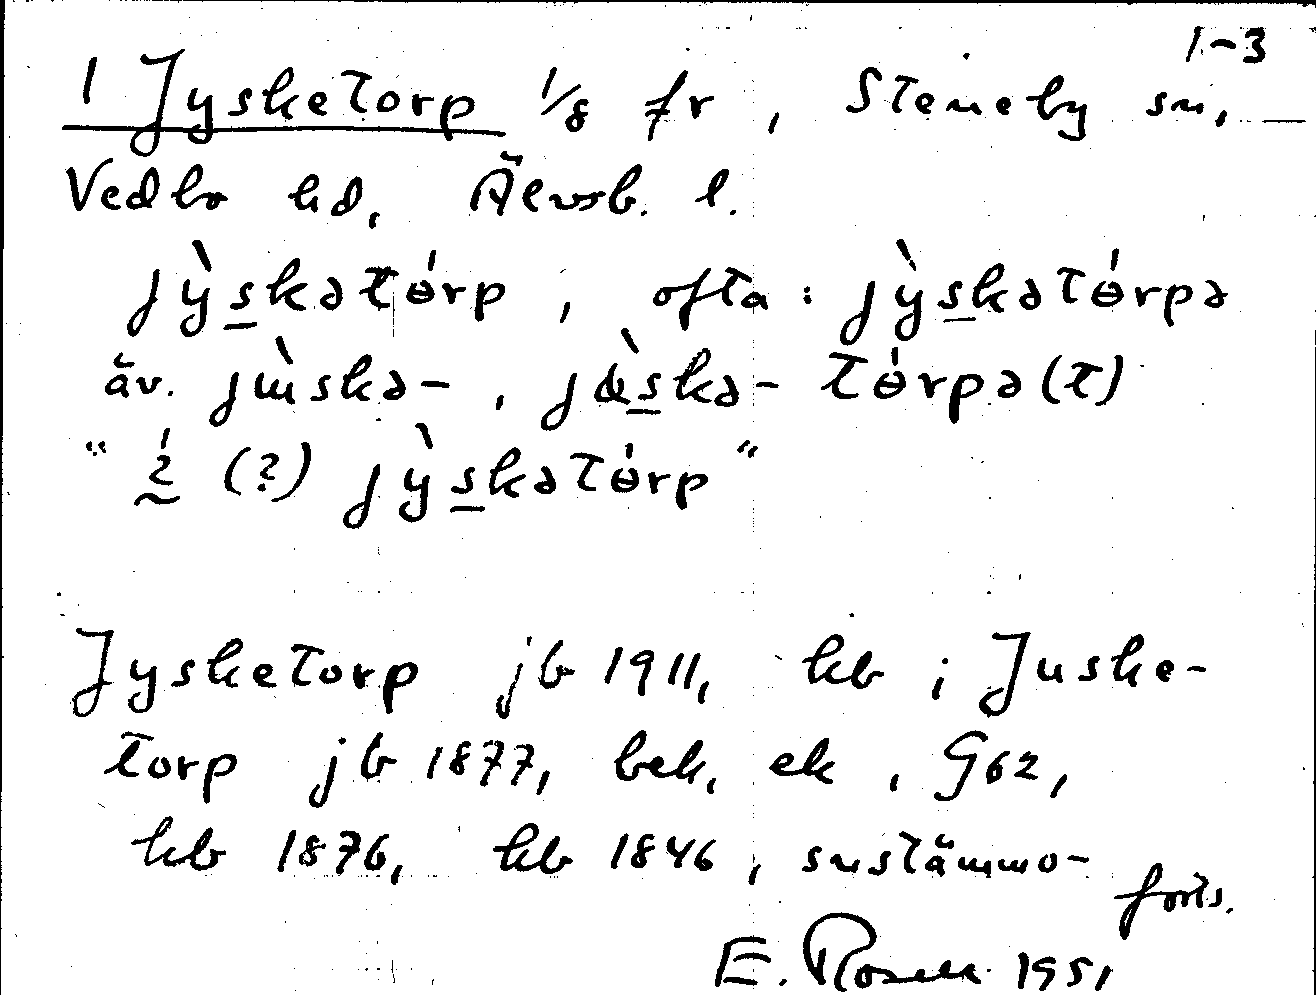 1-3
1 Jysketorp 1/8 fr, Steneby sn,
Vedbo hd, Älvsb. l.
jỳskətɵ́rp, ofta: jỳskətɵ́rpə
äv. jɯ̀skə-, jʉ̀skə- tɵ́rpə(t)
"í (?) jỳskətɵ́rp"
Jysketorp jb 1911, kb; Juske-
torp jb 1877, bek, ek, G62,
kb 1876, kb 1846, snstämmo-
forts.
E. Rosell 1951